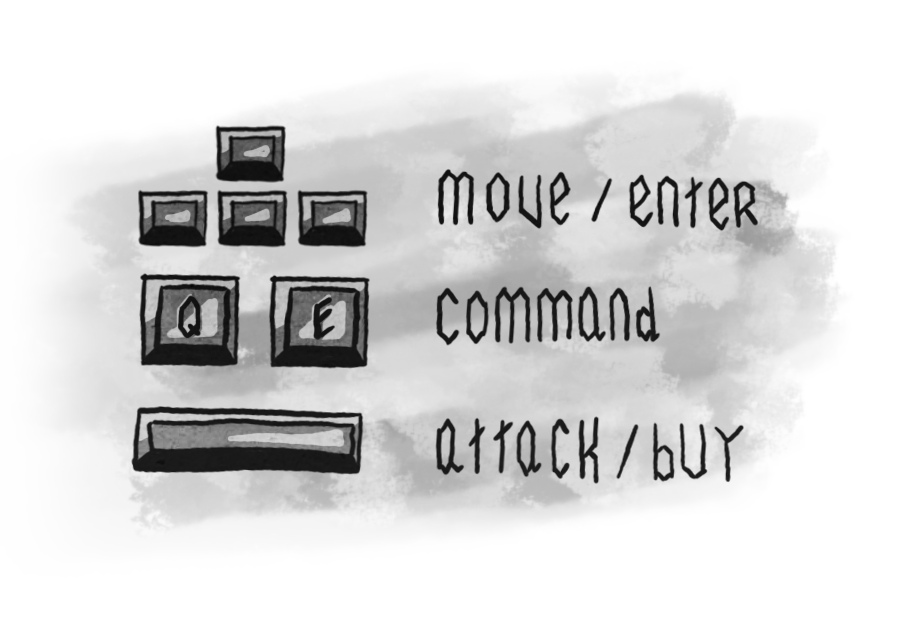 move / enter
Q E command
attack / buy